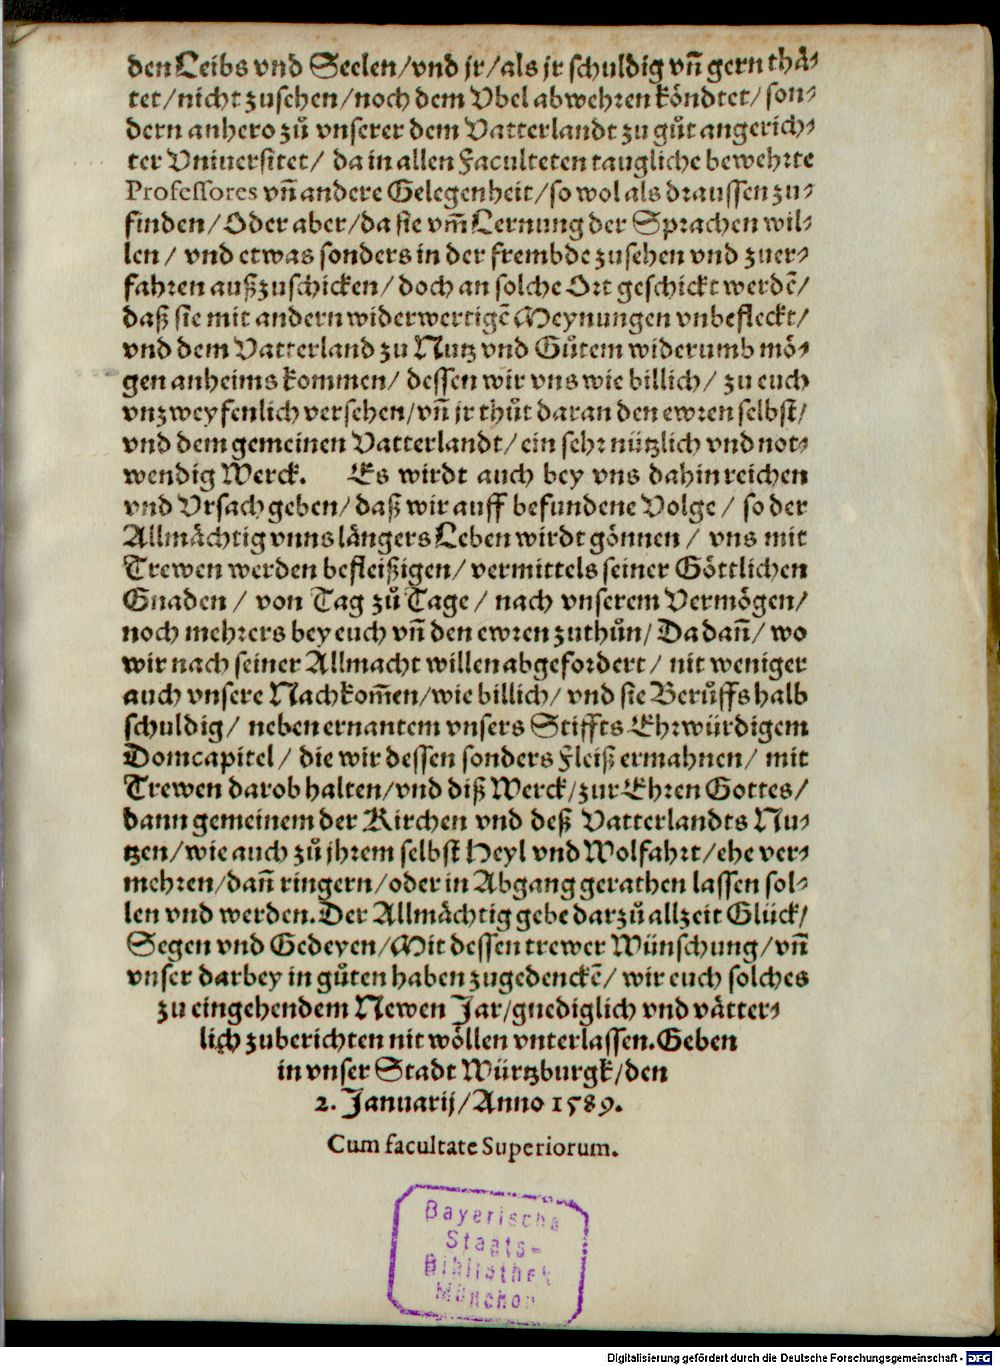 den Leibs vnd Seelen/vnd jr/als jr schuldig vñ gern thå⸗
tet/nicht zusehen/noch dem Vbel abwehren köndtet/son⸗
dern anhero zů vnserer dem Vatterlandt zu gůt angerich⸗
ter Vniuersitet/ da in allen Faculteten taugliche bewehrte
Professores vñ andere Gelegenheit/so wol als draussen zu⸗
finden/Oder aber/da sie vm̃ Lernung der Sprachen wil⸗
len/ vnd etwas sonders in der frembde zusehen vnd zuer⸗
fahren außzuschicken/ doch an solche Ort geschickt werdẽ/
daß sie mit andern widerwertigẽ Meynungen vnbefleckt/
vnd dem Vatterland zu Nutz vnd Gůtem widerumb mö⸗
gen anheims kommen/ dessen wir vns wie billich/ zu euch
vnzweyfenlich versehen/vñ jr thůt daran den ewren selbst/
vnd dem gemeinen Vatterlandt/ ein sehr nützlich vnd not⸗
wendig Werck. Es wirdt auch bey vns dahin reichen
vnd Vrsach geben/daß wir auff befundene Volge/ so der
Allmächtig vnns längers Leben wirdt gönnen/ vns mit
Trewen werden befleißigen/ vermittels seiner Göttlichen
Gnaden/ von Tag zů Tage/ nach vnserem Vermögen/
noch mehrers bey euch vñ den ewren zuthůn/ Da dañ/ wo
wir nach seiner Allmacht willen abgefordert/ nit weniger
auch vnsere Nachkom̃en/wie billich/ vnd sie Berůffs halb
schuldig/ neben ernantem vnsers Stiffts Ehrwürdigem
Domcapitel/ die wir dessen sonders Fleiß ermahnen/ mit
Trewen darob halten/vnd diß Werck/zur Ehren Gottes/
dann gemeinem der Kirchen vnd deß Vatterlandts Nu⸗
tzen/wie auch zů jhrem selbst Heyl vnd Wolfahrt/ehe ver⸗
mehren/dañ ringern/oder in Abgang gerathen lassen sol⸗
len vnd werden. Der Allmächtig gebe darzů allzeit Glück/
Segen vnd Gedeyen/Mit dessen trewer Wünschung/vñ
vnser darbey in gůten haben zugedenckẽ/ wir euch solches
zu eingehendem Newen Jar/gnediglich vnd vätter⸗
lich zuberichten nit wöllen vnterlassen. Geben
in vnser Stadt Würtzburgk/den
2. Januarij/Anno 1589.
Cum facultate Superiorum.
Bayerische
Staats-
Bibliothek
München
Digitalisierung gefördert durch die Deutsche Forschungsgemeinschaft - DFG